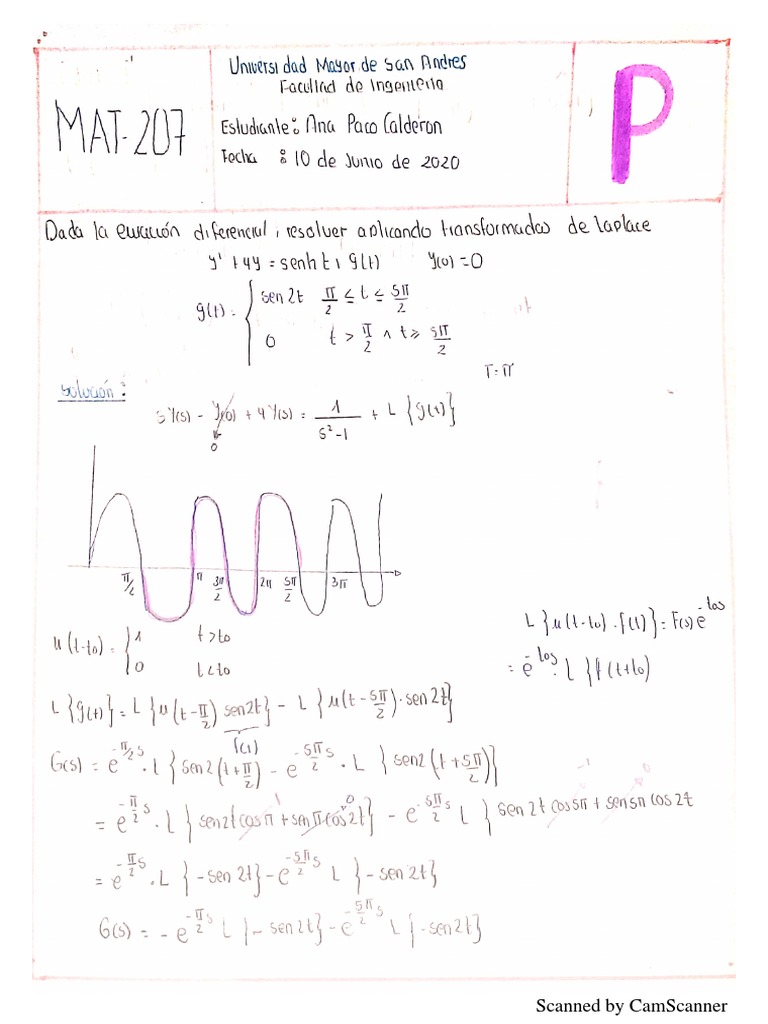 Universidad Mayor de San Andres
Facultad de Ingenieria
MAT-207
Estudiante: Ana Paco Calderon
Fecha : 10 de Junio de 2020
P
Dada la ecuación diferencial, resolver aplicando transformadas de laplace
y' + 4y = senh t, g(t) y(0) = 0
g(t) = { sen 2t π/2 ≤ t ≤ 5π/2
0 t > π/2 ∧ t ≥ 5π/2
T = π
Solución:
sY(s) - y(0) + 4Y(s) = 1/(s²-1) + L{g(t)}
0
π/2 π 3π/2 2π 5π/2 3π
u(t-to) = { 1 t > to
0 t < to
L{u(t-to)·f(t)} = F(s) e^-tos
= e^-tos · L{f(t+to)
L{g(t)} = L{u(t-π/2) sen2t} - L{u(t-5π/2)·sen2t}
f(t)
G(s) = e^-π/2 s · L{sen2(t+π/2) - e^-5π/2 s · L{sen2(t+5π/2)}
= e^-π/2 s · L{sen2t cosπ + senπ cos2t} - e^-5π/2 s L{sen2t cos5π + sen5π cos2t
= e^-π/2 s · L{-sen2t} - e^-5π/2 s L{-sen2t}
G(s) = -e^-π/2 s L{-sen2t} - e^-5π/2 s L{-sen2t}
Scanned by CamScanner